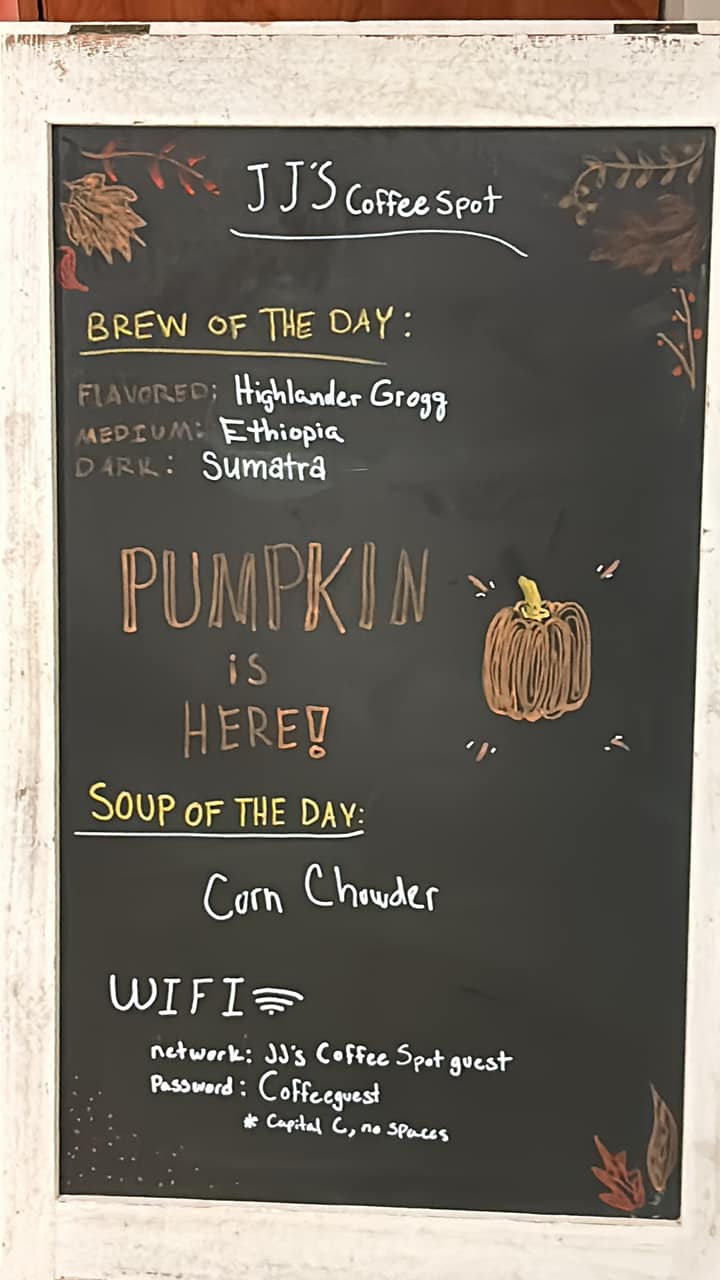 JJ'S Coffee Spot
BREW OF THE DAY:
FLAVORED: Highlander Grogg
MEDIUM: Ethiopia
DARK: Sumatra
PUMPKIN
iS
HERE!
SOUP OF THE DAY:
Corn Chowder
WIFI
network: JJ's Coffee Spot guest
Password: Coffeeguest
* Capital C, no spaces